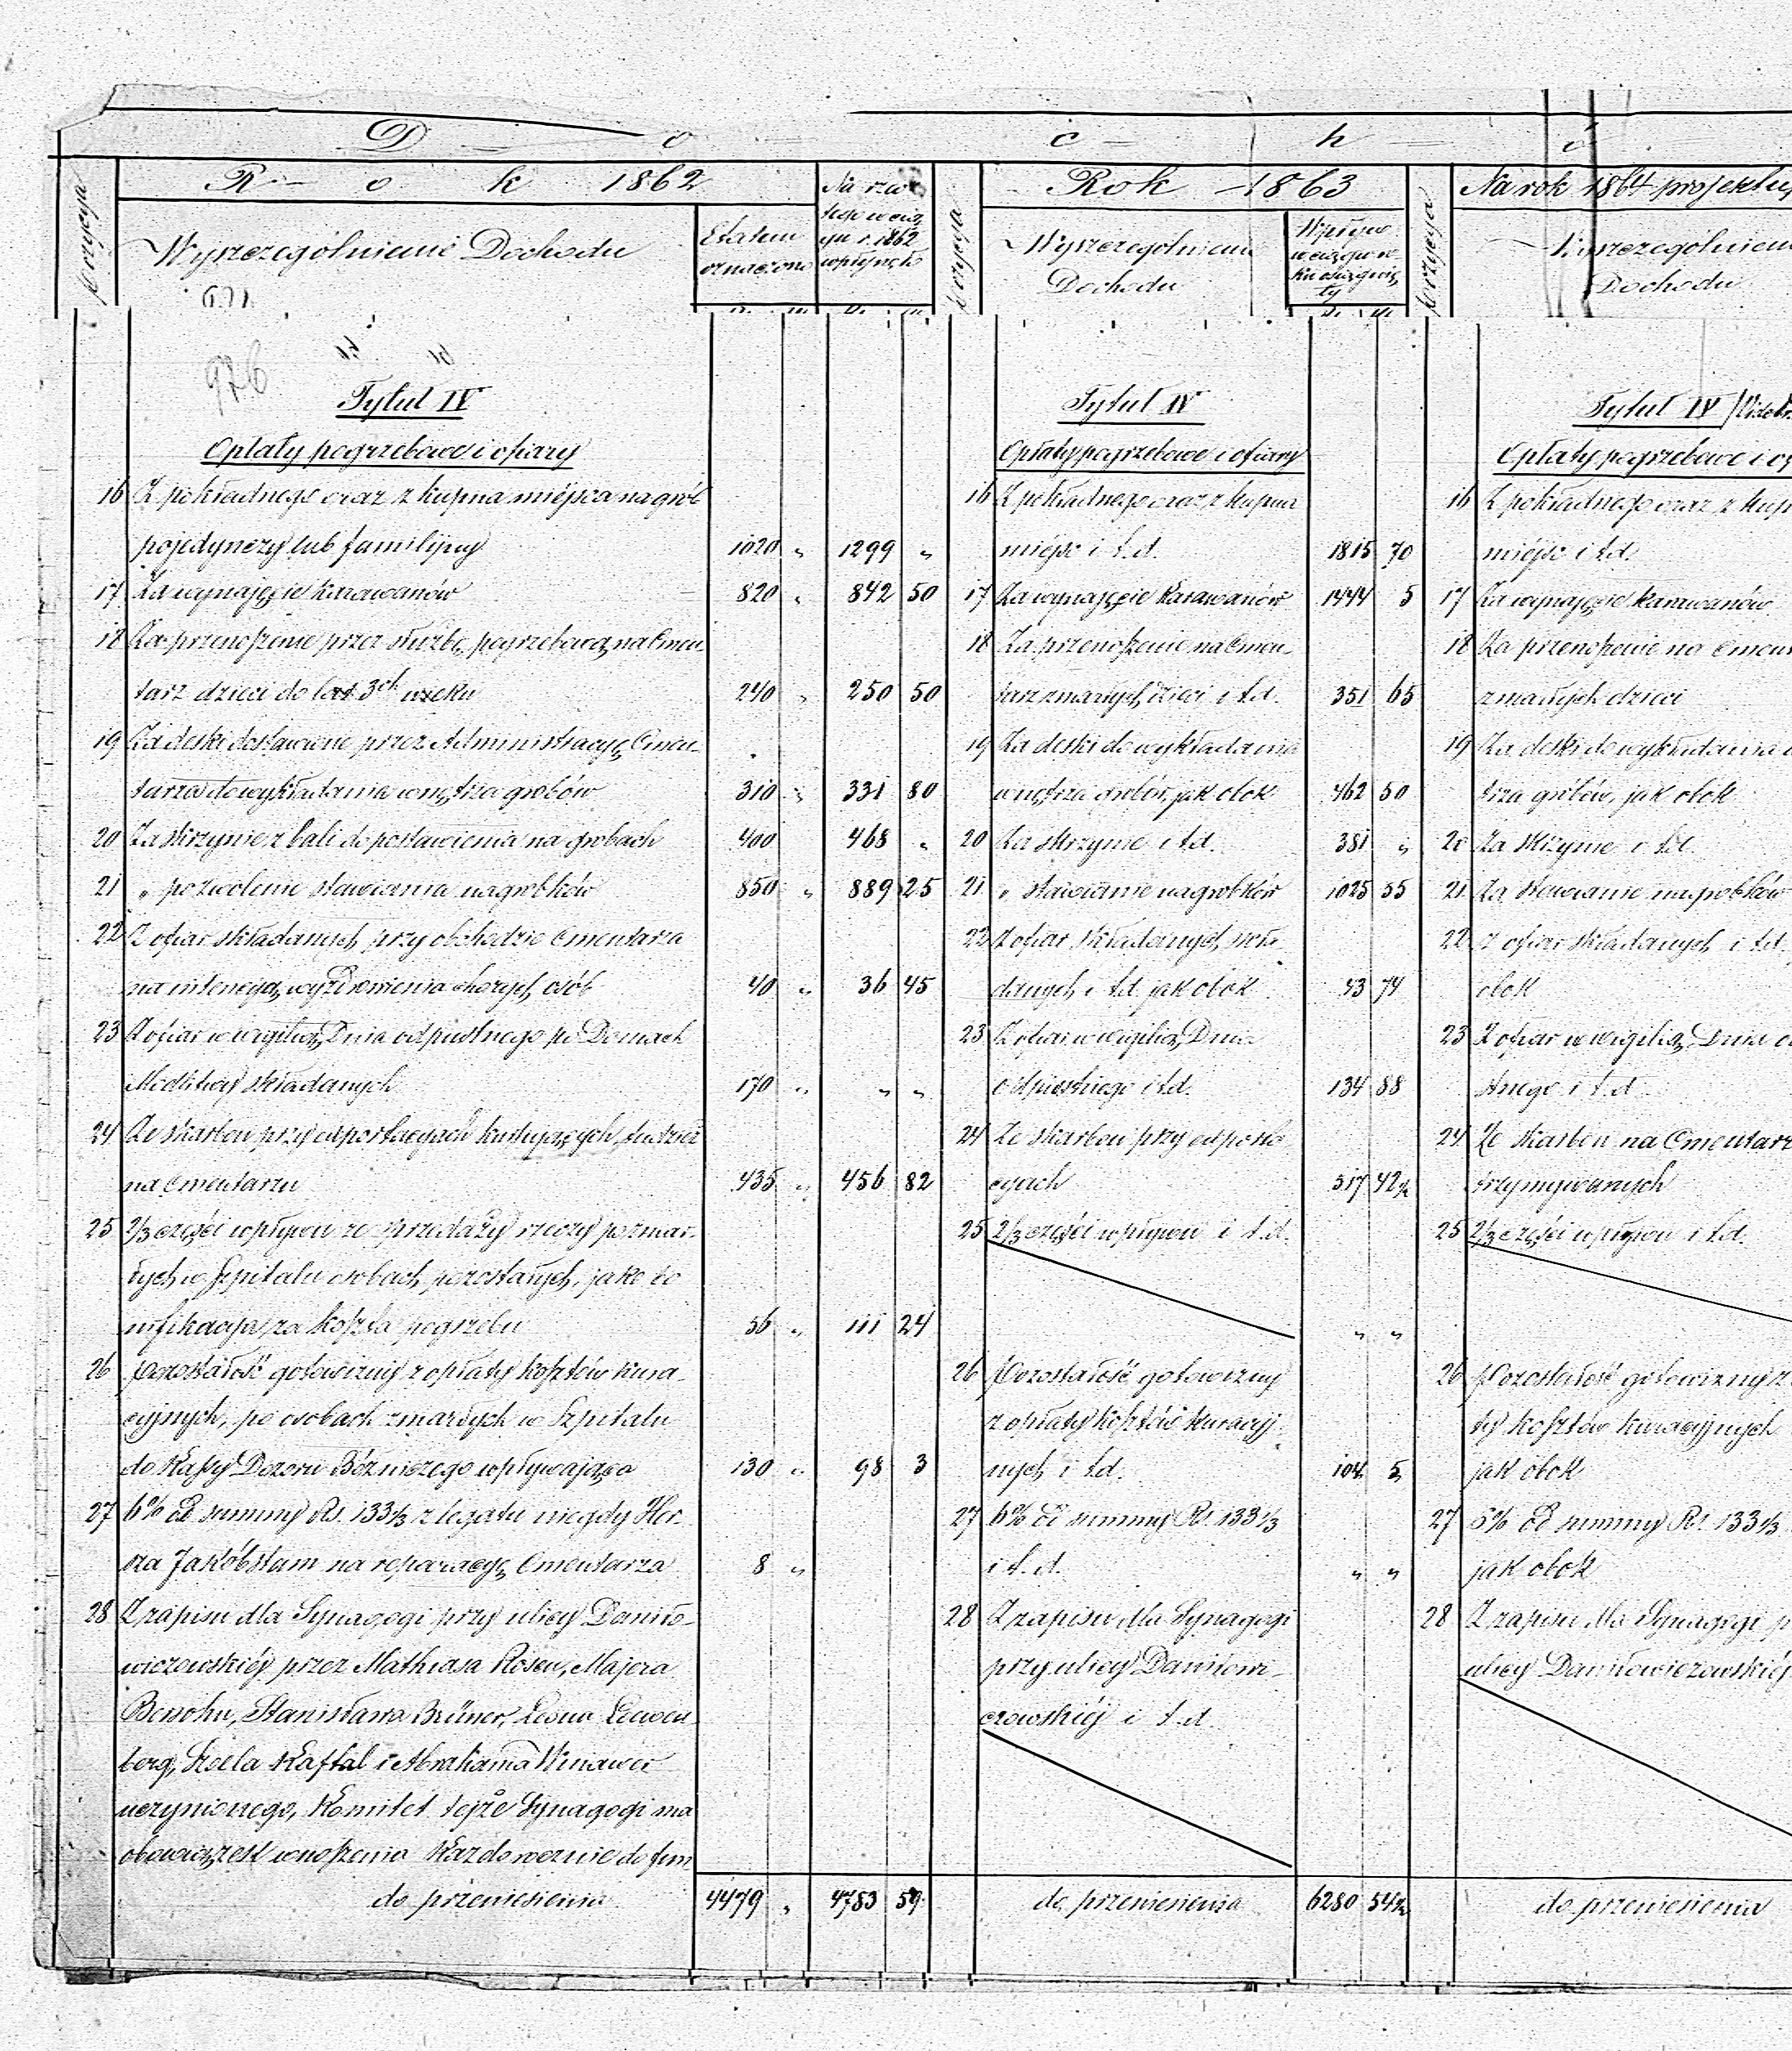 D o c h ó
pozycya
R o k 1862
Wyszczególnienie Dochodu
Etatem oznaczono
wpłynęło
pozycya
Rok 1863
Wyszczególnienie Dochodu
Wpływ
pozycya
Na rok 1864 projektu
Wyszczególnieni
Dochodu
976
Tytuł IV
Opłaty pogrzebowe i ofiary
16 Z pokładnego oraz z kupna miejsca na grób
pojedynczy lub familijny 1020 „ 1299 „
17 Za wynajęcie karawanów 820 „ 842 50
18 Za przenoszenie przez służbę pogrzebową na Cmen-
tarz dzieci do lat 3ch wieku 240 „ 250 50
19 Za deski dostawione przez Administracyę Cmen-
tarza do wykładania wnętrza grobów 310 „ 331 80
20 Za skrzynie z bali do postawienia na grobach 400 468 „
21 „ pozwolenie stawiania nagrobków 850 „ 889 25
22 Z ofiar składanych przy obchodzie Cmentarza
na intencyą wyzdrowienia chorych osób 40 „ 36 45
23 Z ofiar w wigilią Dnia odpustnego po Domach
Modlitwy składanych 170 „ „ „
24 Ze skarbon przy exportacyach kursujących, tudzież
na Cmentarzu 435 „ 456 82
25 2/3 części wpływu ze sprzedaży rzeczy po zmar-
łych w Szpitalu osobach pozostałych, jako bo
nifikacya za koszta pogrzebu 56 „ 111 24
26 Pozostałość gotowizny z opłaty kosztów kura-
cyjnych, po osobach zmarłych w Szpitalu
do Kassy Dozoru Bóżniczego wpływająca 130 „ 98 3
27 6% od summy Rs. 133 1/3 z legatu niegdy Her-
sza Jakóbstam na reparacyę Cmentarza 8 „
28 Z zapisu dla Synagogi przy ulicy Daniło-
wiczowskiéj przez Mathiasa Rosen, Majera
Bersohn, Stanisława Brüner, Leona Loewen
berg, Kaftal i Abrahama Winawer
uczynionego, Komitet tejże Synagogi ma
obowiązek wnoszenia każdo do fun
do przeniesienia 4479 „ 4783 59
Tytuł IV
Opłaty pogrzebowe i ofiary
16 Z pokładnego oraz z kupna
miejsc i t.d. 1815 70
17 Za wynajęcie karawanów 1444 5
18 Za przenoszenie na Cmen-
tarz zmarłych dzieci i t.d. 351 65
19 Za deski do wykładania
wnętrza grobów, jak obok 462 50
20 Za skrzynie i t.d. 381 „
21 „ stawianie nagrobków 1025 55
22 Z ofiar składanych
i t.d. jak obok 43 74
23 Z ofiar w wigilią Dnia
odpustnego i t.d. 134 88
24 Ze skarbon przy exporta
cyach 517 42½
25 2/3 części wpływu i t.d. „ „
26 Pozostałość gotowizny
z opłaty kosztów kuracyj
nych i t.d. 104 5
27 6% od summy Rs. 133 1/3
i t.d. „ „
28 Z zapisu dla Synagogi
przy ulicy Daniłowi-
czowskiéj i t.d.
do przeniesienia 6280 54½
Tytuł IV
Opłaty pogrzebowe i of
16 Z pokładnego oraz z kup
miejsc i t.d.
17 Za wynajęcie karawanów
18 Za przenoszenie na Cmen
zmarłych dzieci
19 Za deski do wykładania
trza grobów, jak obok
20 Za skrzynie i t.d.
21 Za stawianie nagrobków
22 Z ofiar składanych i t.d.
obok
23 Z ofiar w wigilią Dnia o
stnego i t.d.
24 Ze skarbon na Cmentarz
trzymywanych
25 2/3 części wpływu i t.d.
26 Pozostałość gotowizny z
ty kosztów kuracyjnych
jak obok
27 6% od summy Rs. 133 1/3
jak obok
28 Z zapisu dla Synagogi p
ulicy Daniłowiczowskiéj
do przeniesienia